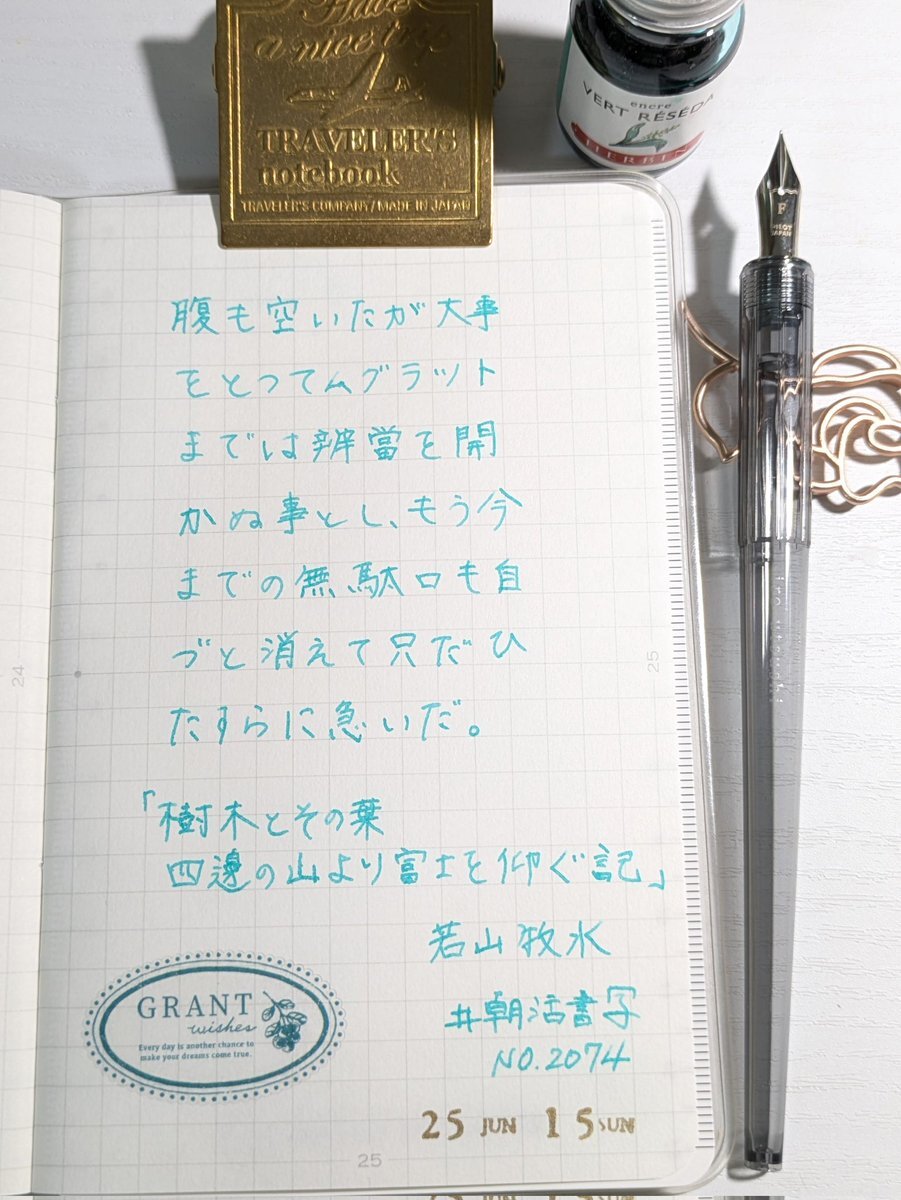 Have
a nice trip
TRAVELER'S
notebook
TRAVELER'S COMPANY/MADE IN JAPAN
encre
VERT RÉSÉDA
HERBIN
F
PILOT
JAPAN
腹も空いたが大事
をとつてムグラツト
までは辨當を開
かぬ事とし、もう今
までの無駄口も自
づと消えて只だひ
たすらに急いだ。
「樹木とその葉
四邊の山より富士を仰ぐ記」
若山牧水
#朝活書写
NO.2074
GRANT
wishes
Every day is another chance to
make your dreams come true.
25 JUN 15 SUN
24
25
25